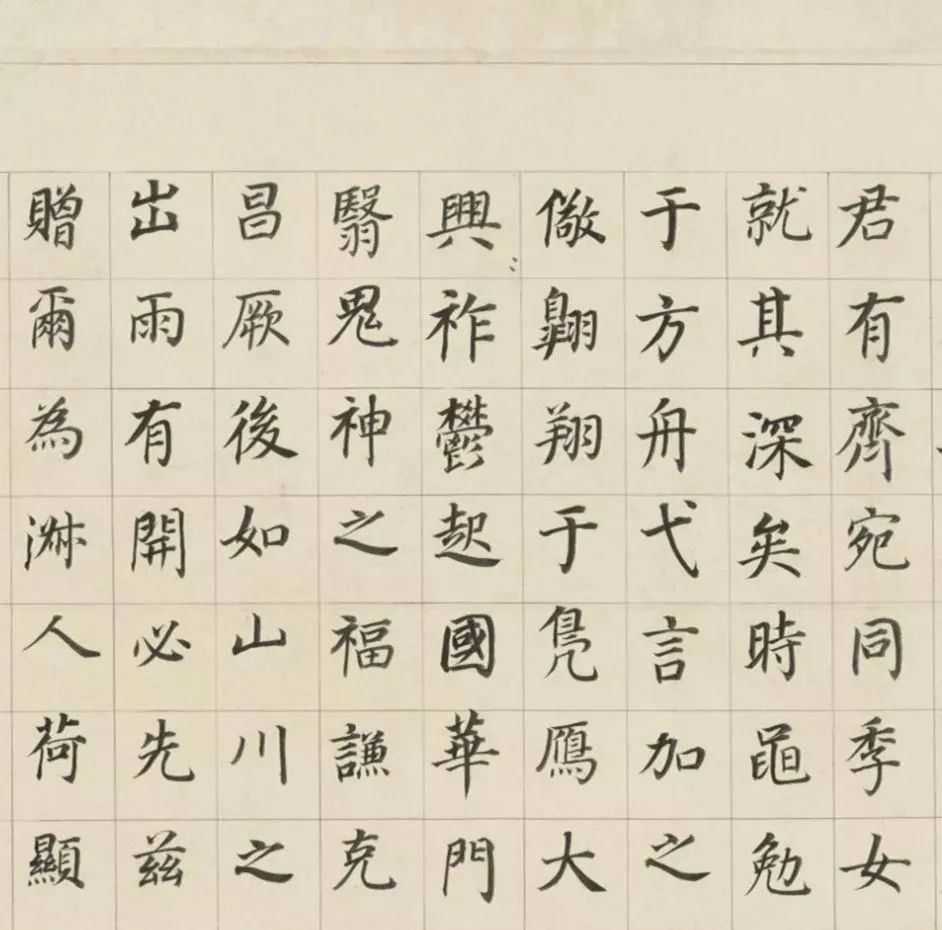 君有齊宛同季女
就其深矣時黽勉
于方舟弋言加之
儆翺翔于鳧鴈大
興祚鬱起國華門
翳鬼神之福謙克
昌厥後如山川之
出雨有開必先兹
贈爾為淑人荷顯